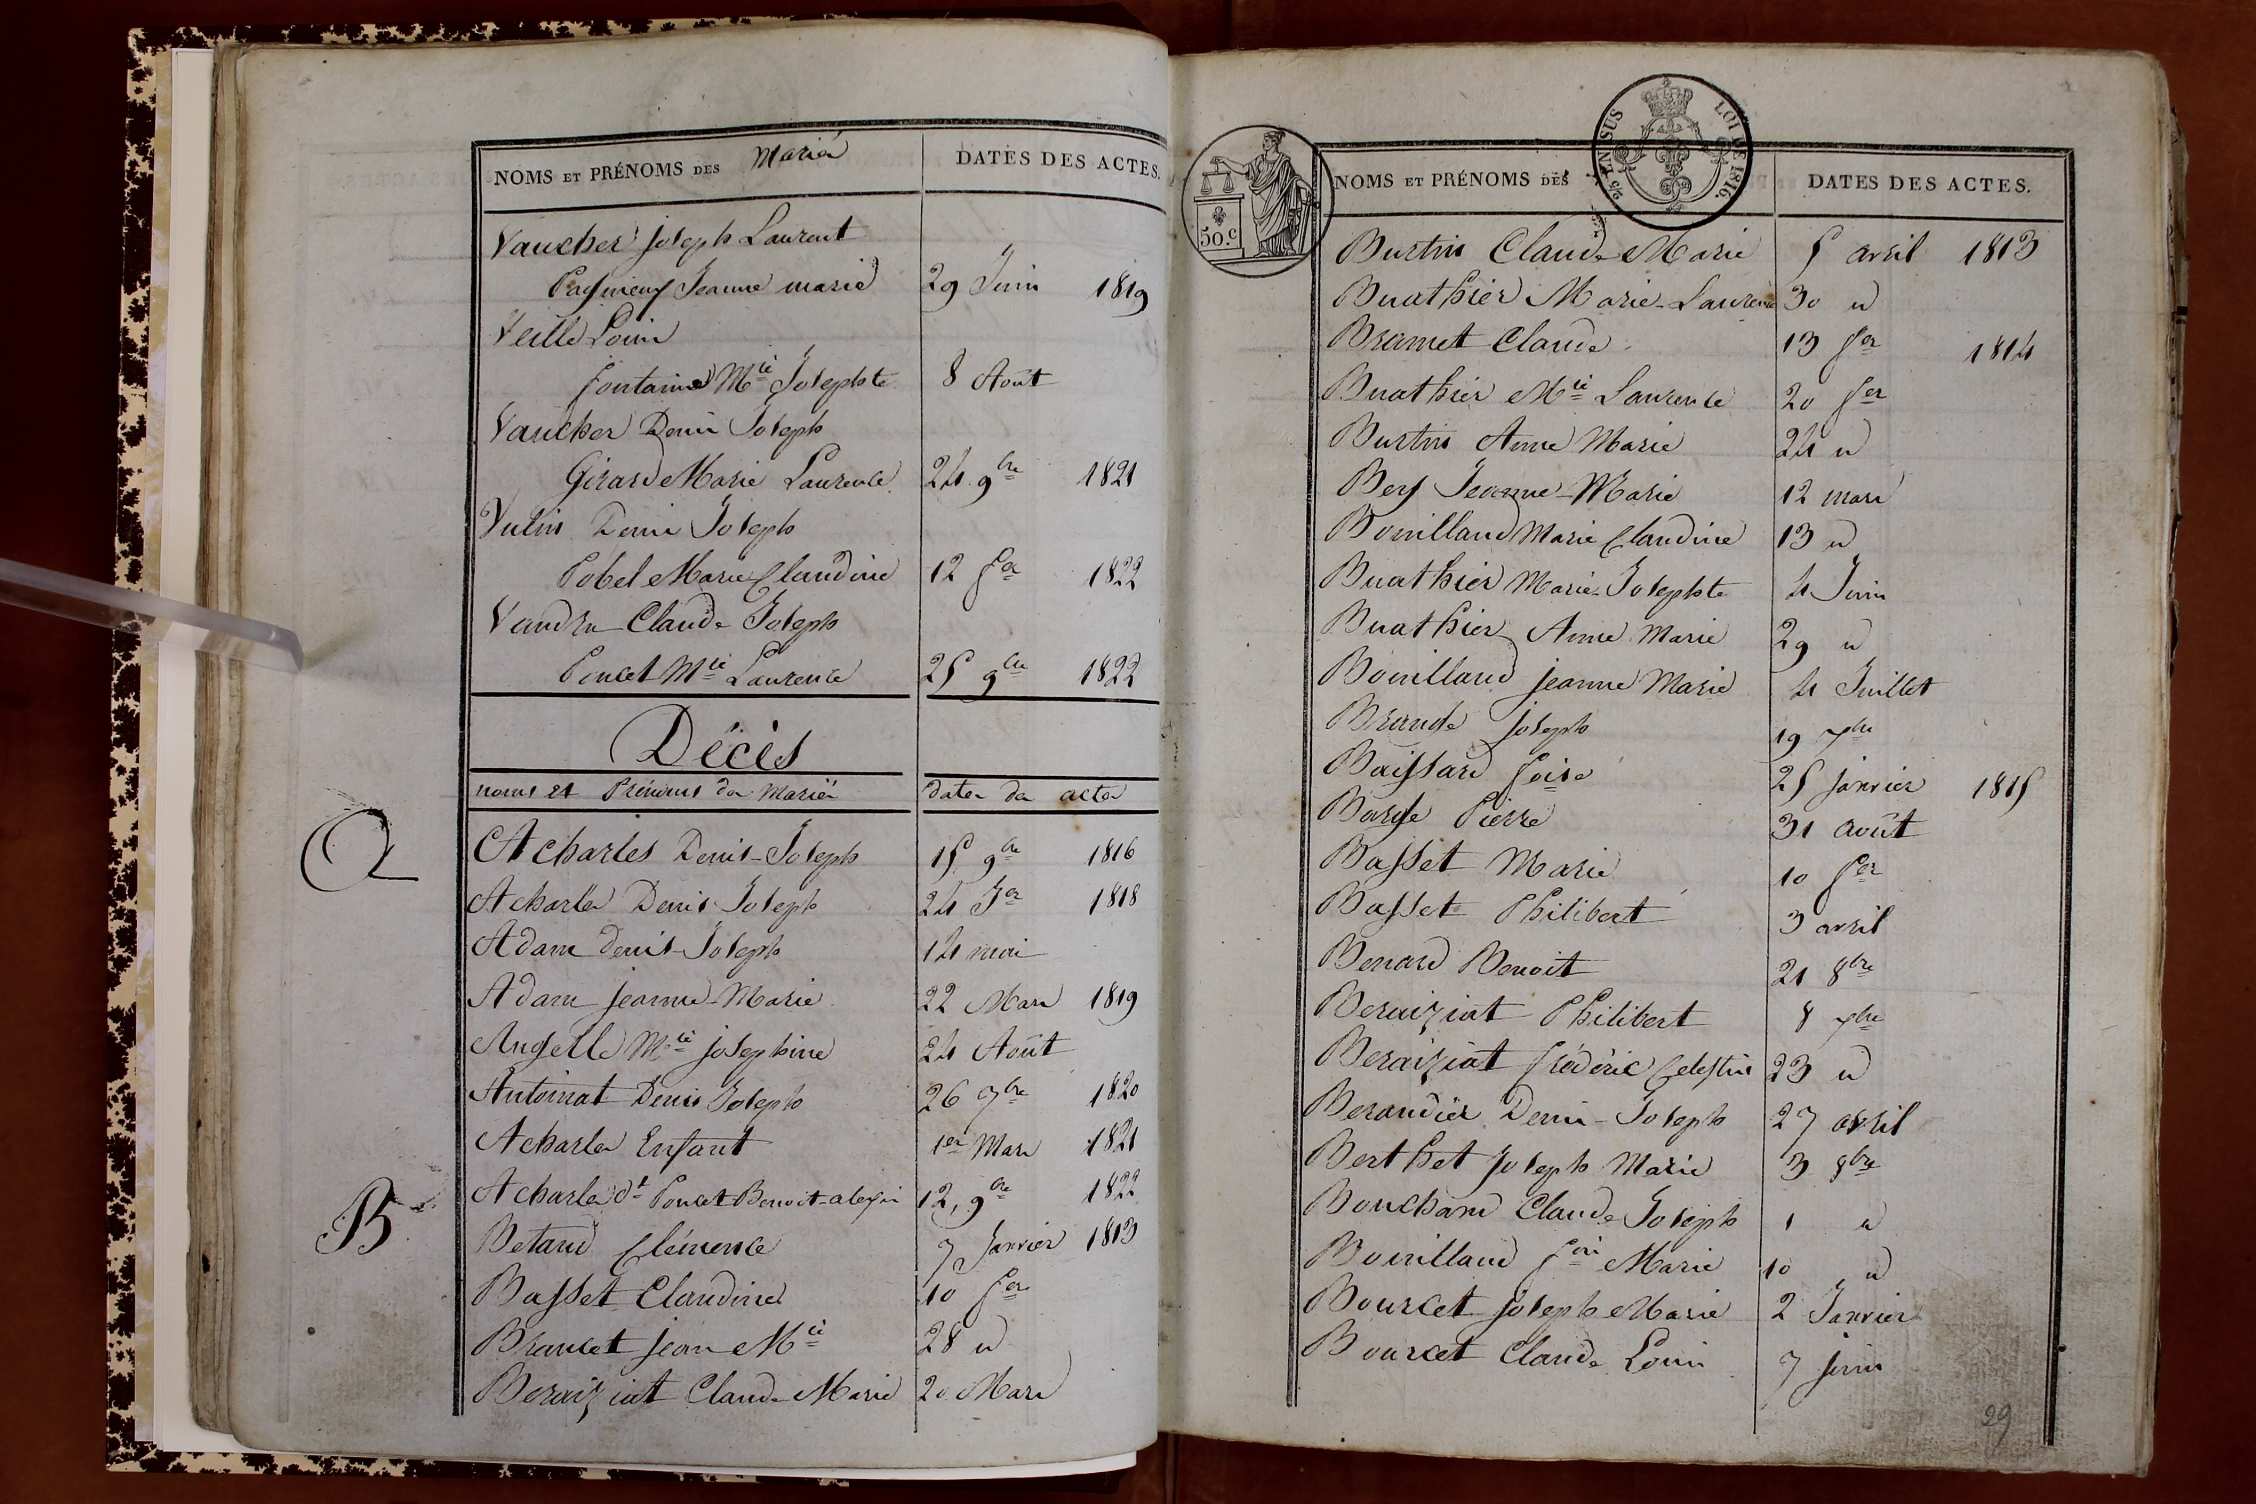 NOMS ET PRÉNOMS DES Mariés DATES DES ACTES.
Vaucher joseph Laurent
Jeanne marie 29 Juin 1819
Veille Louis
fontaine Mie Josephte 8 Août
Vaucher Denis Joseph
Girard Marie Laurence 24 9bre 1821
Vulin Denis Joseph
Pobel Marie Claudine 12 fer 1822
Claude Joseph
Poncet Mie Laurence 25 9bre 1822
Décès
noms et Prénoms des Mariés dates des actes
A
Acharles Denis-Joseph 15 9bre 1816
Acharles Denis Joseph 24 Jer 1818
Adam denis-Joseph 14 mai
Adam jeanne-Marie 22 Mars 1819
Mie josephine 24 Août
Antoinat Denis Joseph 26 7bre 1820
Acharles Enfant 1er Mars 1821
Acharles dt Poncet Benoit-alexis 12, 9bre 1822
B
Betand Clémence 7 Janvier 1813
Basset Claudine 10 fer
Brancet jean Mie 28 id
Beraiziat Claude Marie 20 Mars
50.c
TIMB. EN SUS
LOI DE 1816.
NOMS ET PRÉNOMS DES DATES DES ACTES.
Burtin Claude Marie 5 avril 1813
Buathier Marie-Laurence 30 id
Bramet Claude 13 fer 1814
Buathier Mie Laurence 20 fer
Burtin Anne Marie 24 id
Bey Jeanne-Marie 12 mars
Bouilland Marie Claudine 13 id
Buathier Marie-Josephte 4 Juin
Buathier Anne Marie 29 id
Bouilland jeanne Marie 4 Juillet
Brande joseph 19 7bre
Baissard foise 25 janvier 1815
Barge Pierre 31 août
Basset Marie 10 fer
Basset Philibert 3 avril
Benard Benoit 21 8bre
Beraiziat Philibert 8 7bre
Beraiziat frédéric Celestin 23 id
Beraudier Denis-Joseph 27 avril
Berthet joseph Marie 3 8bre
Bouchard Claude Joseph 1 id
Bouilland foie Marie 10 id
Bourcet joseph Marie 2 Janvier
Bourcet Claude Louis 7 juin
29